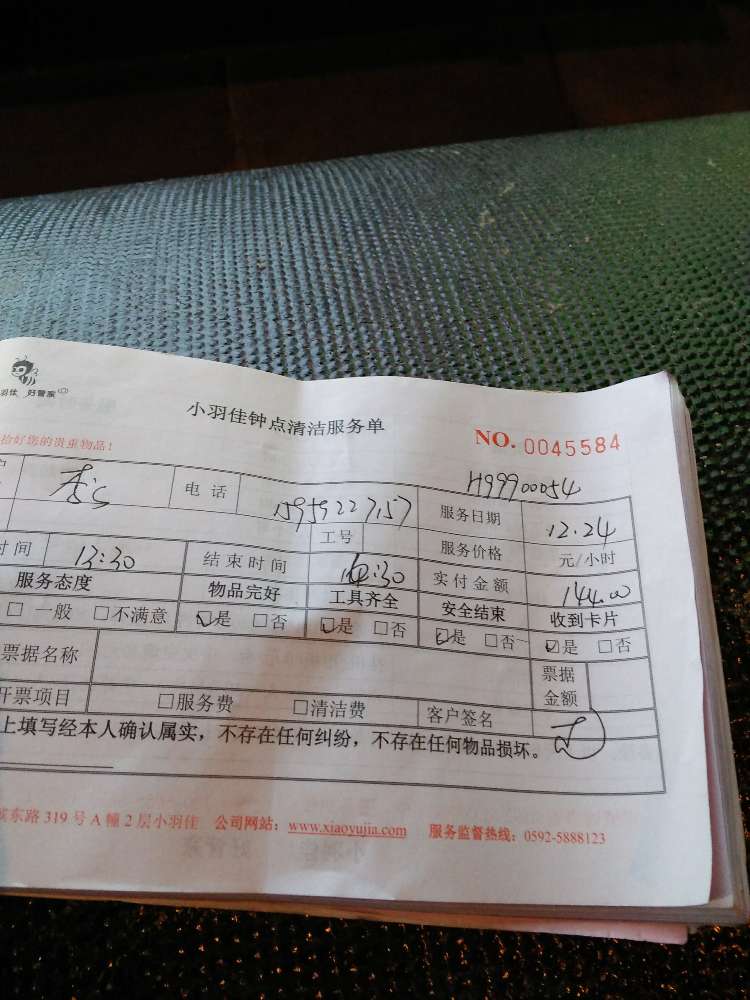 羽佳 好管家
小羽佳钟点清洁服务单
NO. 0045584
拾好您的贵重物品！
H99900054
电话 服务日期 12.24
工号 服务价格 元/小时
时间 13:30 结束时间 实付金额 144.00
服务态度 物品完好 工具齐全 安全结束 收到卡片
□ 一般 □不满意 ☑是 □否 ☑是 □否 ☑是 □否 ☑是 □否
票据名称 票据金额
开票项目 □服务费 □清洁费 客户签名
上填写经本人确认属实，不存在任何纠纷，不存在任何物品损坏。
东路319号A幢2层小羽佳 公司网站：www.xiaoyujia.com 服务监督热线：0592-5888123